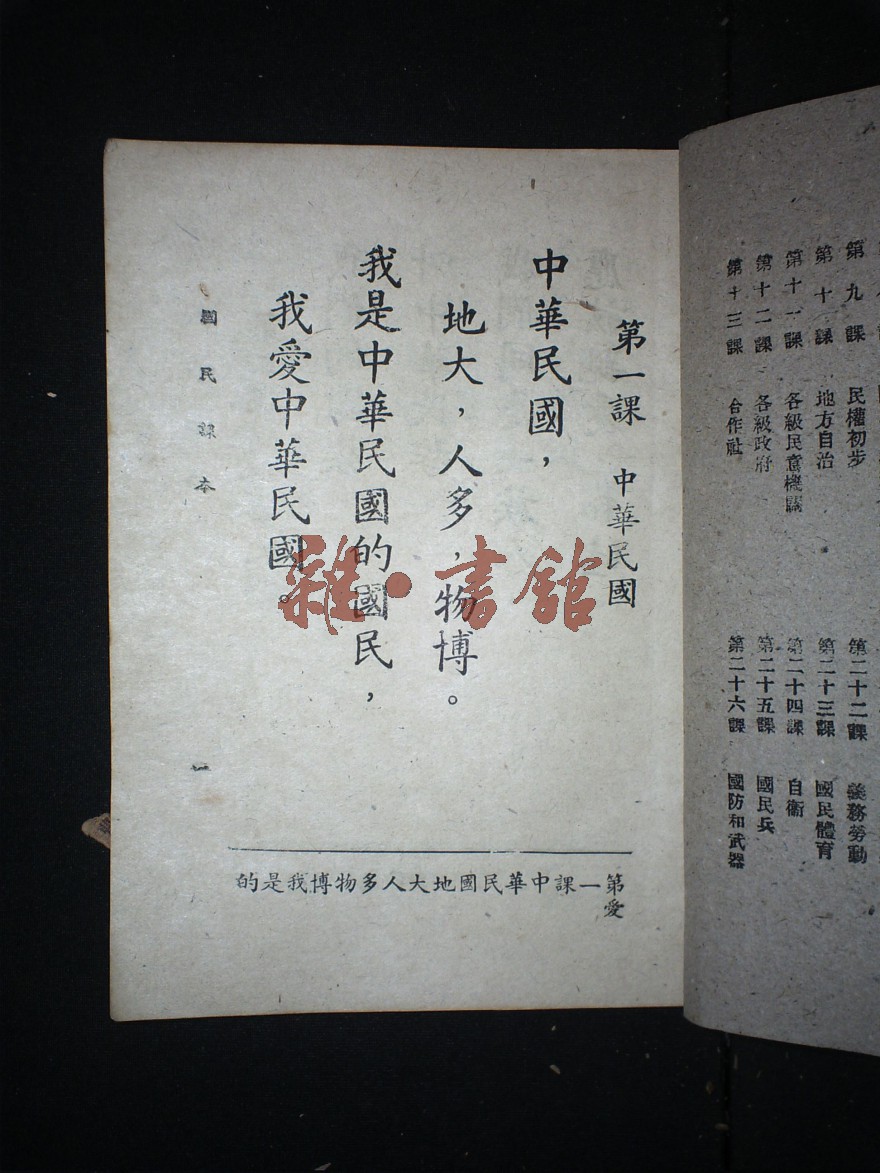 第九課　民權初步
第十課　地方自治
第十一課　各級民意機關
第十二課　各級政府
第十三課　合作社
第二十二課　義務勞動
第二十三課　國民體育
第二十四課　自衛
第二十五課　國民兵
第二十六課　國防和武器
第一課　中華民國
中華民國，
地大，人多，物博。
我是中華民國的國民，
我愛中華民國。
國民課本
一
第一課中華民國地大人多物博我是的
愛
雜·書館